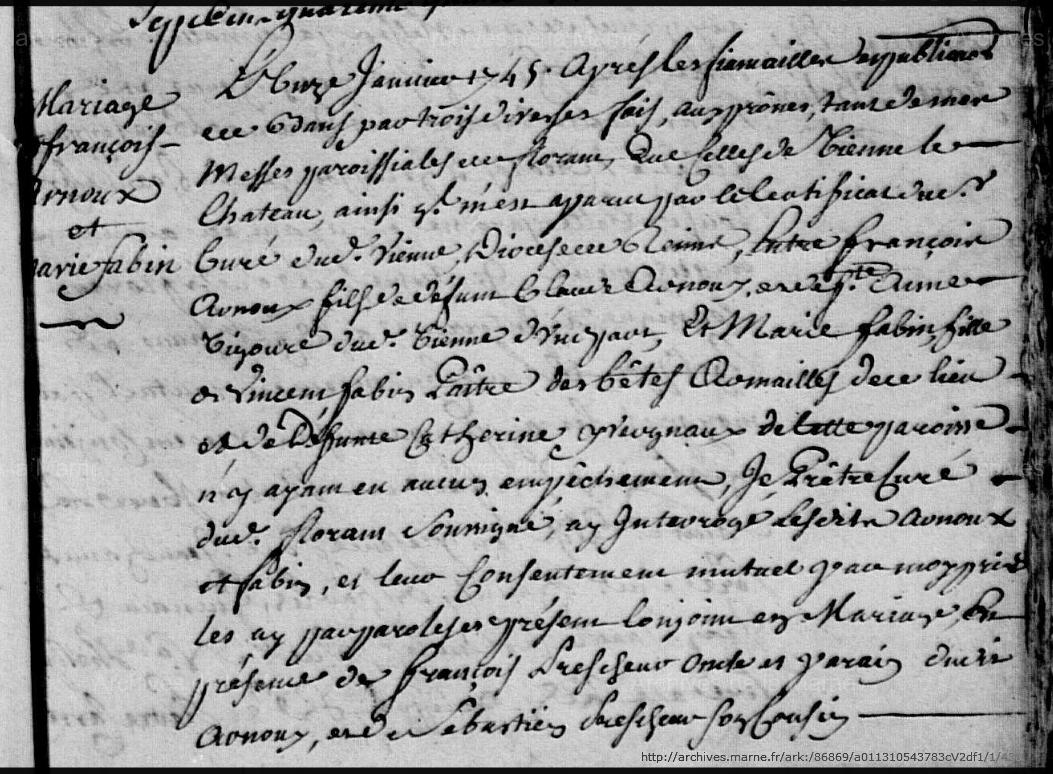 Mariage
françois
Arnoux
et
Marie fabin
L'Onze Janvier 1745. Après les fiancailles et publications
de Bans par trois diverses fois, aux prônes, tant de mes
Messes paroissiales de floram, que Celles de Vienne le
Chateau, ainsi q. m'est aparu par le Certificat du S.r
Curé dud. Vienne, Diocese de Reims, Entre françois
Arnoux fils de défunt Claude Arnoux, et de Aimée
dud. Vienne d'une part, Et Marie fabin, fille
de Vincent fabin Pâtre des bêtes Aumailles de ce lieu
et de Défunte Catherine de Cette paroisse
n'y ayant eu aucun empêchement, Je Prêtre Curé
dud. floram Soussigné, ay Interrogé Lesdits Arnoux
et fabin, et leur Consentement mutuel par moy pris
les ay par paroles de présent Conjoint en Mariage, En
présence de françois Lescheur Oncle et parain dudit
Arnoux, et de Sebastien Lescheur son Cousin
http://archives.marne.fr/ark:/86869/a011310543783cV2df1/1/